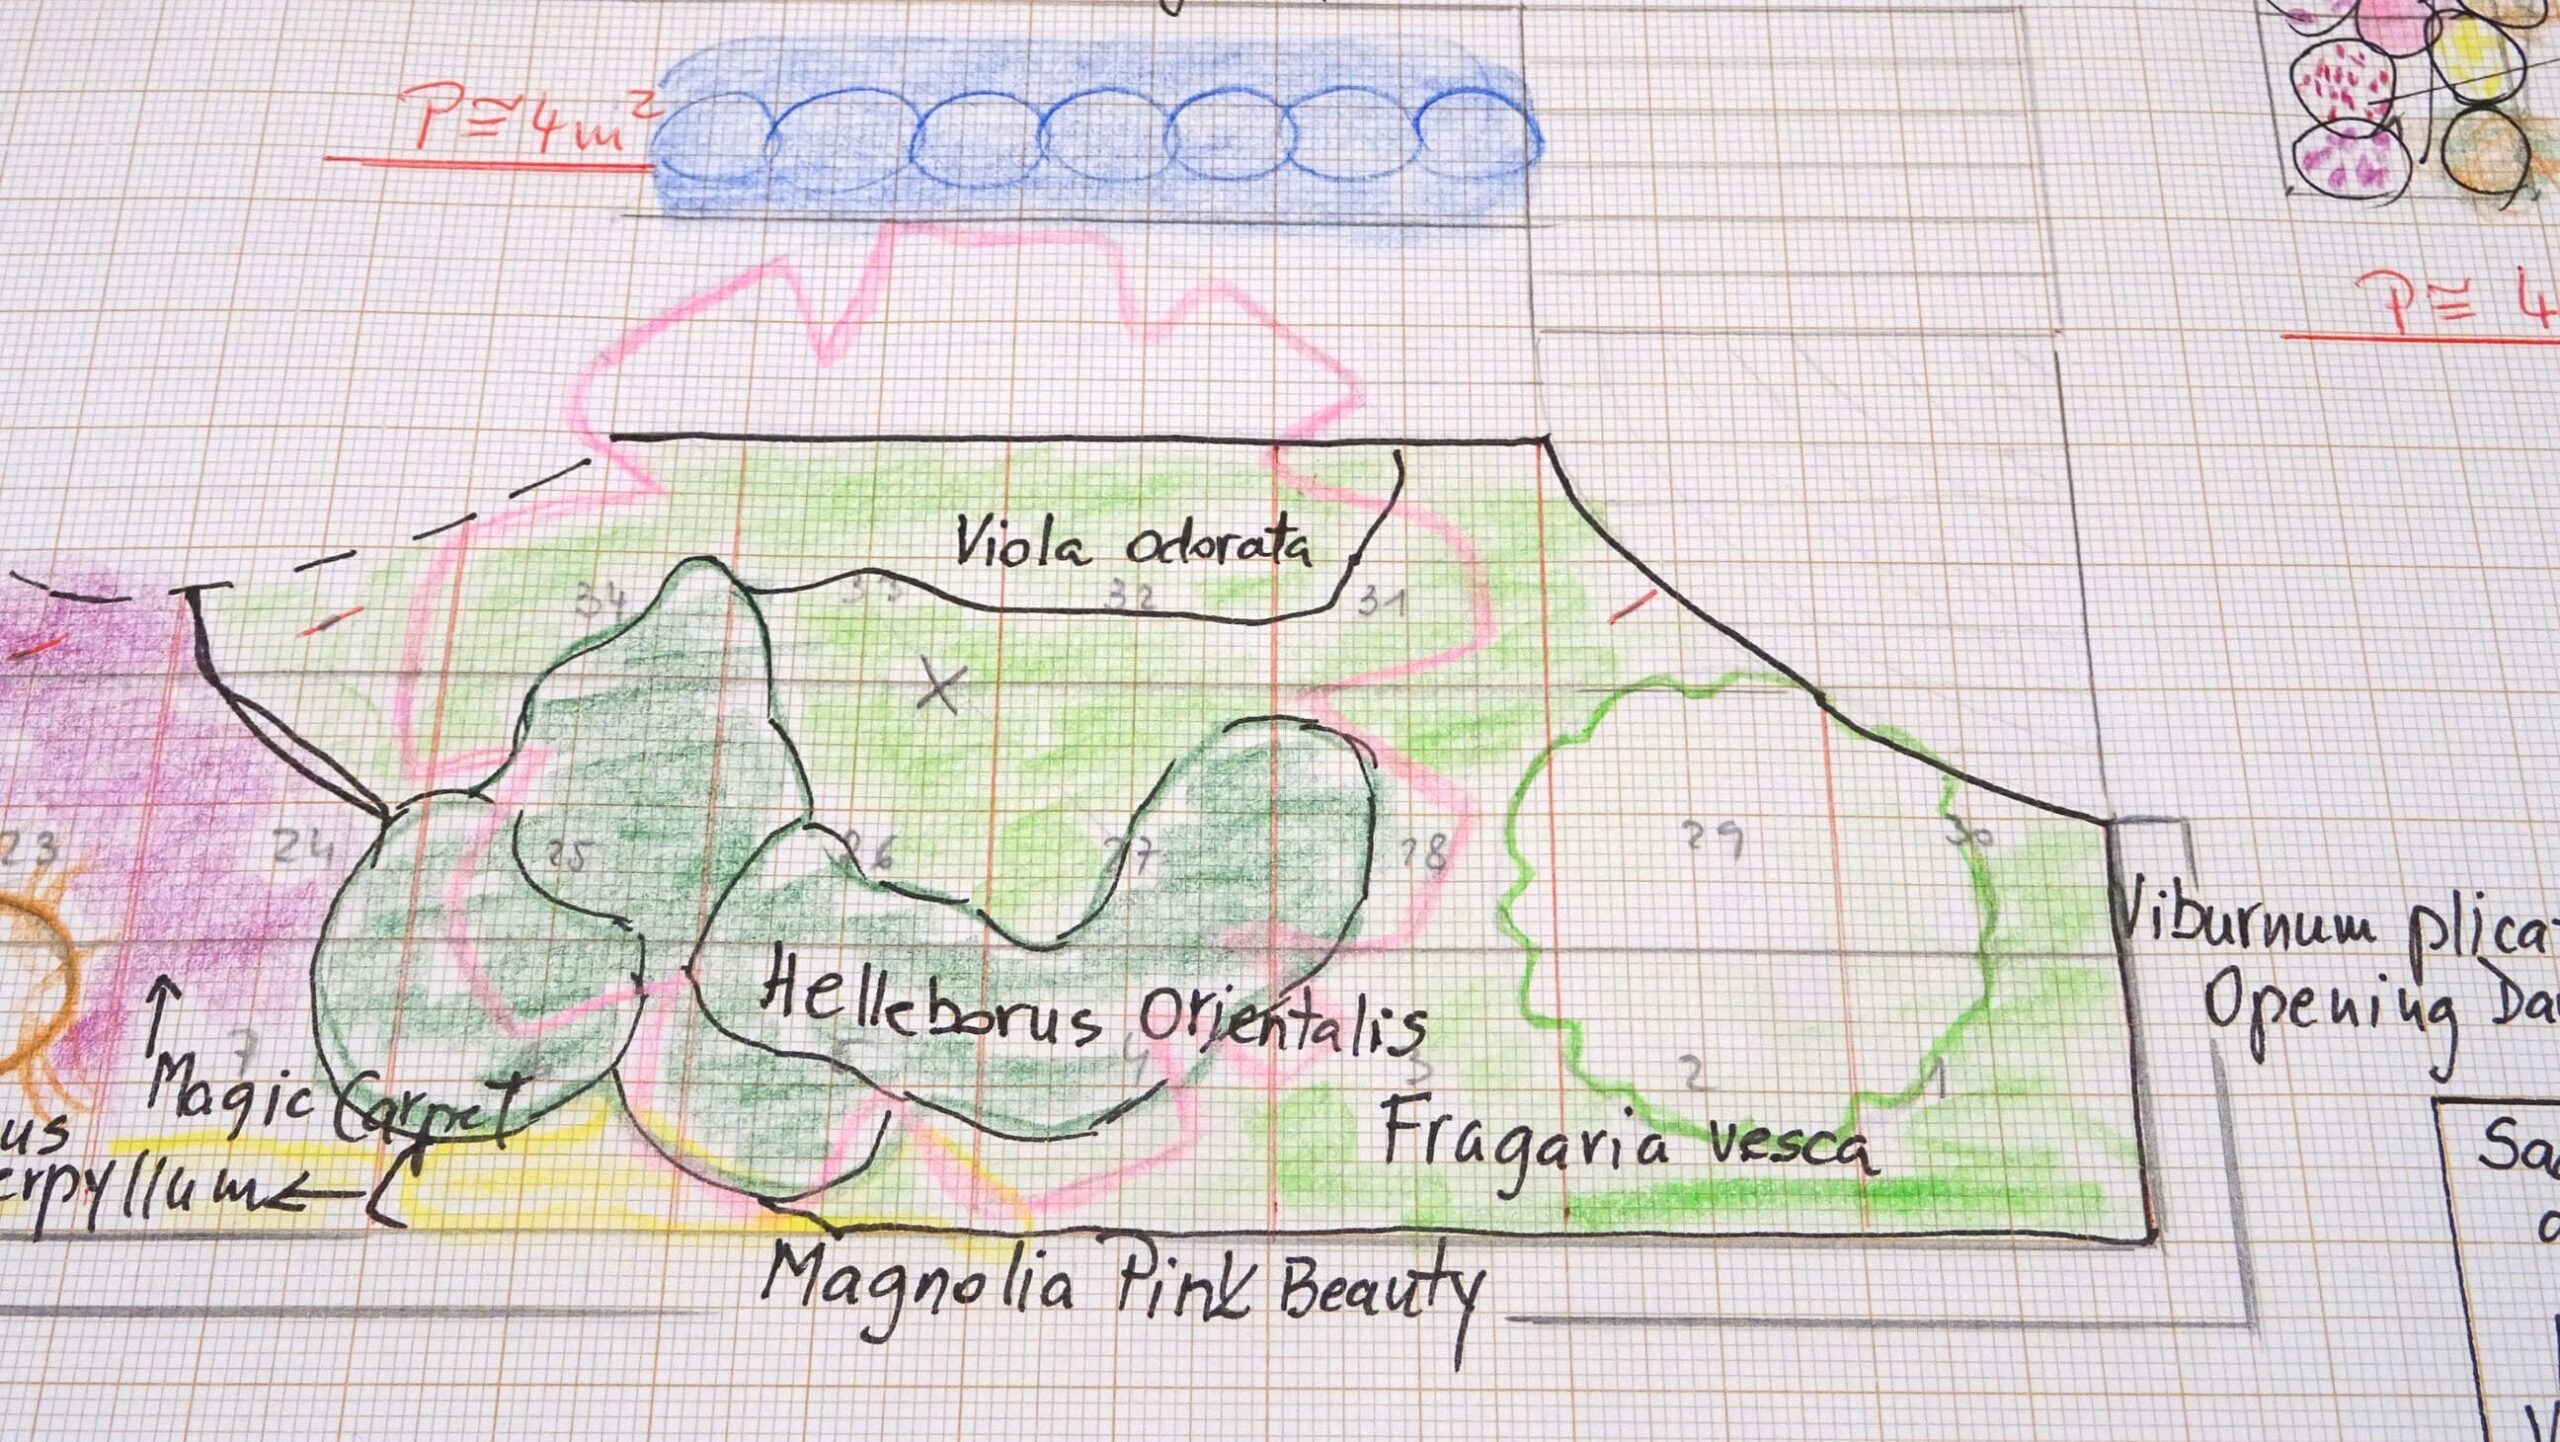 P≅4m²
P≅ 4
Viola odorata
34
33
32
31
X
23
24
25
26
27
28
29
30
Viburnum plica
Opening Da
Helleborus Orientalis
7
5
4
3
2
1
Magic Carpet
Fragaria vesca
us
erpyllum
Sa
Magnolia Pink Beauty